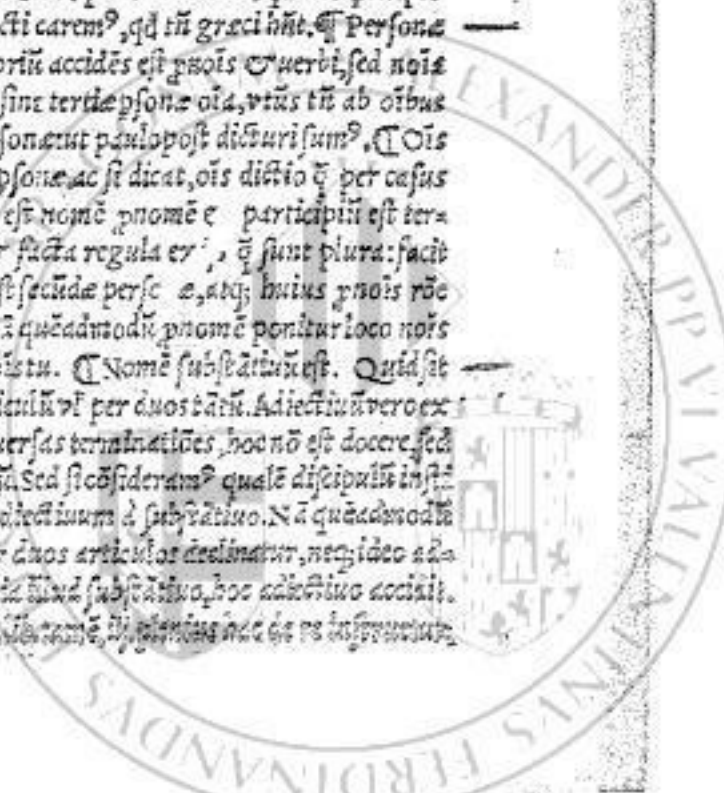 cti carem⁹, qđ tñ græci hñt. ¶ Personæ
oriũ accidēs est ꝓnoīs & uerbi, sed noīa
sint tertiæ ꝑsonæ oīa, vtũs tñ ab oībus
sonæ, ut paulopost dicturi sum⁹. ¶ Oīs
ꝑsonæ, ac si dicat, oīs dictio q̃ per casus
est nomē ꝓnomē & participiũ est ter=
r facta regula q̃ sunt plura: facit
st secũdæ æ, atq; huius ꝓnoīs rōe
quēadmodũ ꝓnomē ponitur loco noīs
istu. ¶ Nomē substātiuũ est. Quid sit
iculũ vł per duos tātũ. Adiectiuũ vero ex
uersas terminatiōes, hoc nō est docere, sed
Sed si cōsideram⁹ qualē discipulũ insti
diectiuum à substātiuo. Nā quēadmodũ
r duos articulos declinatur, neq; ideo ad=
substātiuo, hoc adiectiuo accidit.
tamē, plenius hac de re
ALEXANDER PP VI VALENTINVS FERDINANDVS